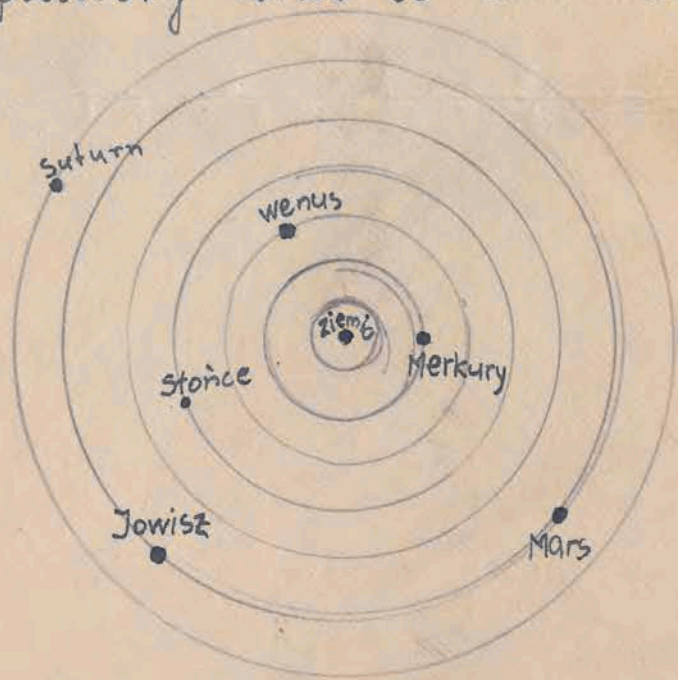 saturn
wenus
ziemia
Merkury
słońce
Jowisz
Mars